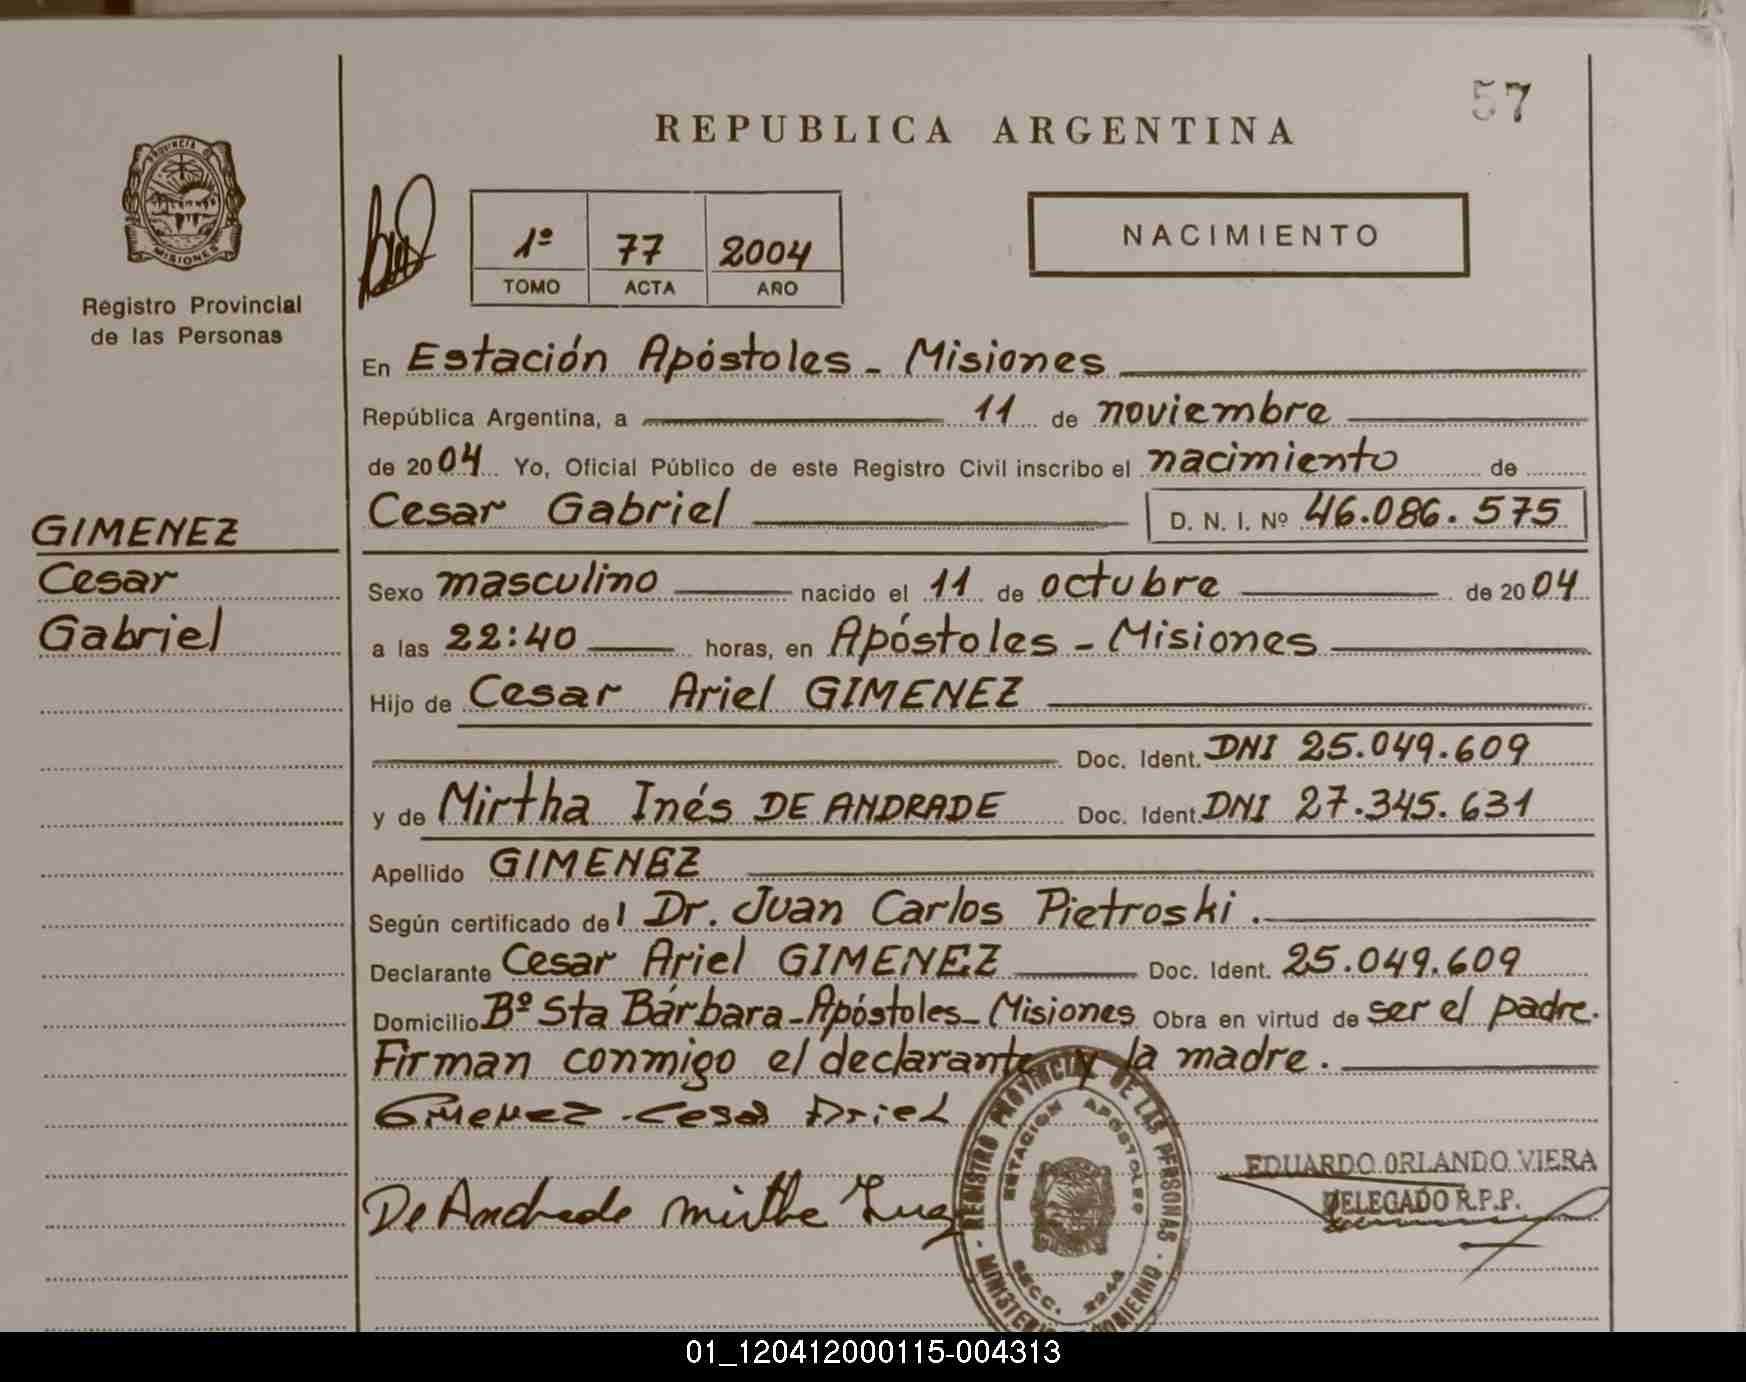 57
REPUBLICA ARGENTINA
PROVINCIA DE
MISIONES
Registro Provincial
de las Personas
1º 77 2004
TOMO ACTA AÑO
NACIMIENTO
En Estación Apóstoles - Misiones
República Argentina, a 11 de noviembre
de 2004 Yo, Oficial Público de este Registro Civil inscribo el nacimiento de
Cesar Gabriel D. N. I. Nº 46.086.575
GIMENEZ
Cesar
Gabriel
Sexo masculino nacido el 11 de octubre de 2004
a las 22:40 horas, en Apóstoles - Misiones
Hijo de Cesar Ariel GIMENEZ
Doc. Ident. DNI 25.049.609
y de Mirtha Inés DE ANDRADE Doc. Ident. DNI 27.345.631
Apellido GIMENEZ
Según certificado del Dr. Juan Carlos Pietroski.
Declarante Cesar Ariel GIMENEZ Doc. Ident. 25.049.609
Domicilio Bº Sta Bárbara - Apóstoles - Misiones Obra en virtud de ser el padre.
Firman conmigo el declarante y la madre.
Gimenez Cesar Ariel
De Andrade Mirtha
REGISTRO PROVINCIAL DE LAS PERSONAS
ESTACION APOSTOLES
SECC. 2944
GOBIERNO
EDUARDO ORLANDO VIERA
DELEGADO R.P.P.
01_120412000115-004313